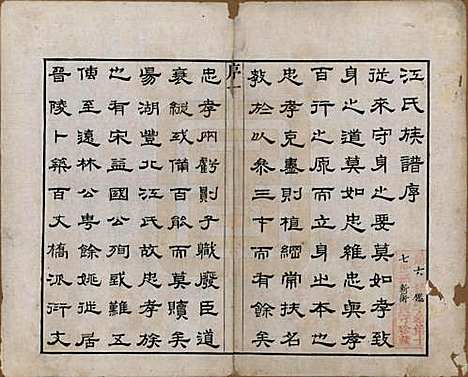 江氏族譜序
從來守身之要莫如孝致
身之道莫如忠維忠與孝
百行之原而立身之本也
忠孝克盡則植綱常扶名
教於以參三才而有餘矣
序一
忠孝兩虧則子職廢臣道
衰縱或備百能而莫贖矣
暘湖豐北江氏故忠孝族
也有宋益國公殉或難五
傳至遠林公粤餘姚從居
晉陵卜築百丈橋派衍文